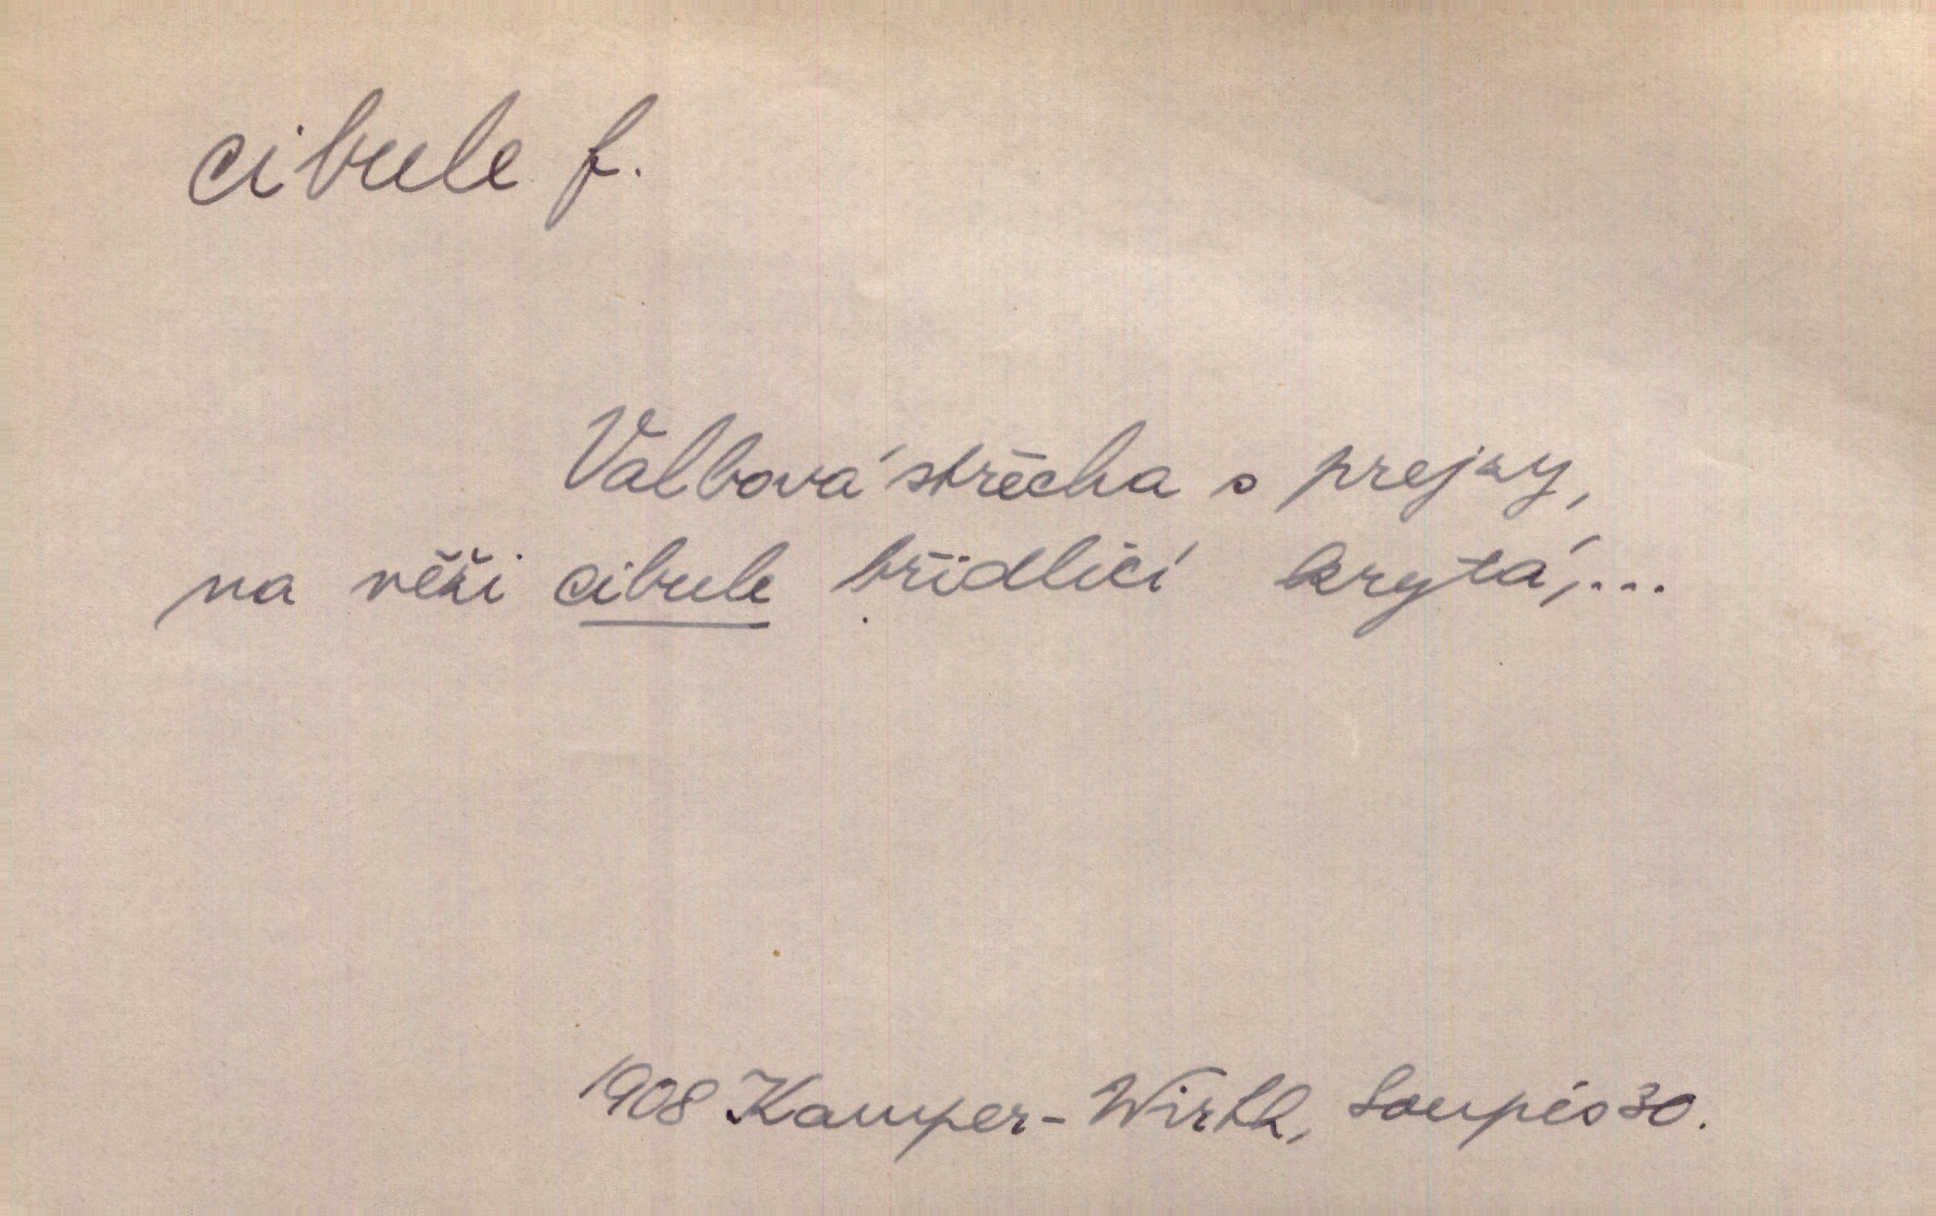 cibule f.
Valbová střecha s prejzy,
na věži cibule břidlicí krytá,...
1908 Kamper-Wirth, Soupis 30.